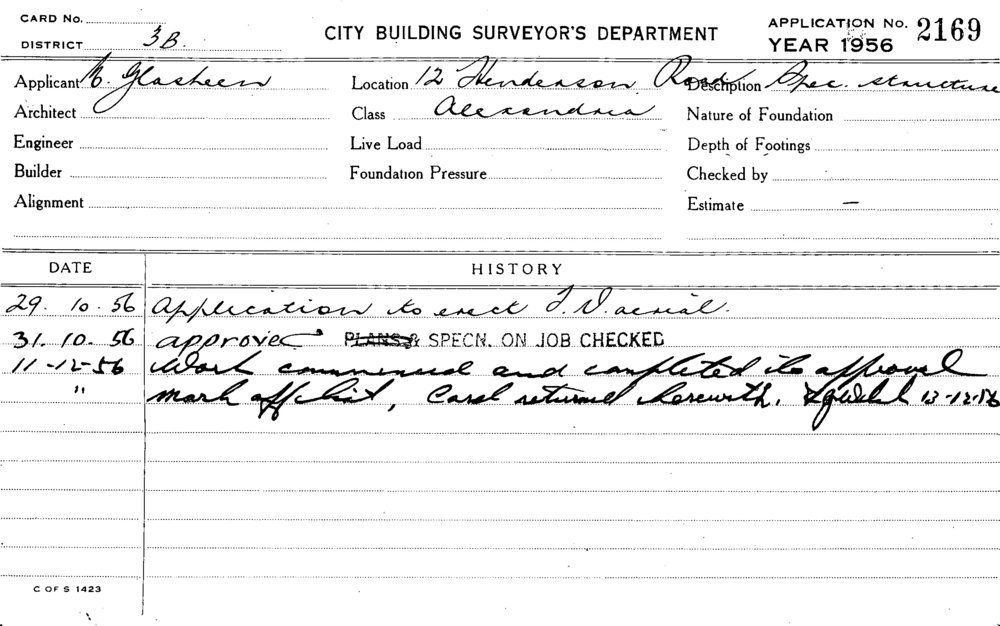 CARD No.
DISTRICT 3B.
CITY BUILDING SURVEYOR'S DEPARTMENT
APPLICATION No. 2169
YEAR 1956
Applicant Glasheen Location 12 Henderson Road Description Spec. structure
Architect Class Alexandria Nature of Foundation
Engineer Live Load Depth of Footings
Builder Foundation Pressure Checked by
Alignment Estimate —
DATE HISTORY
29. 10. 56 Application to erect T.V. aerial.
31. 10. 56 approved PLANS & SPECN. ON JOB CHECKED
11-12-56 Work commenced and completed to approval
" mark off list, Card returned herewith. 13-12-56
C OF S 1423